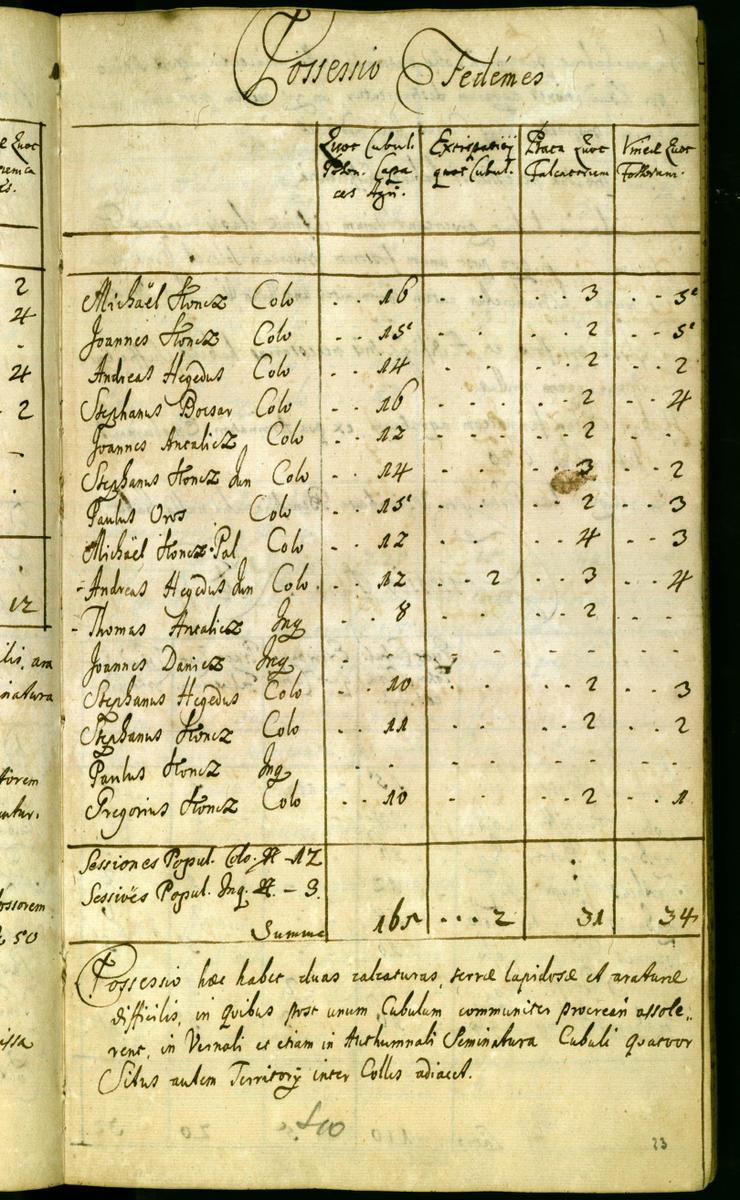 Possessio Fedémes
Quot Cubul. Poson. Capaces Agri.
Extirpatitÿ quot Cubul.
Prata Quot Falcatorum
Vineæ Quot Fossorum.
Michaël Koncz Colo . . 16 . . . . 3 . . 5
Joannes Koncz Colo . . 15 . . . . 2 . . 5
Andreas Hegedus Colo . . 14 . . . . 2 . . 2
Stephanus Bocsar Colo . . 16 . . . . 2 . . 4
Joannes Antalicz Colo . . 12 . . . . 2 . .
Stephanus Koncz Jun Colo . . 14 . . . . 3 . . 2
Paulus Oros Colo . . 15 . . . . 2 . . 3
Michaël Koncz Pal Colo . . 12 . . . . 4 . . 3
- Andreas Hegedus Jun Colo . . 12 . . 2 . . 3 . . 4
- Thomas Antalicz Inq . . 8 . . . . 2 . . .
Joannes Danicz Inq . . . . . . . . . . .
Stephanus Hegedus Colo . . 10 . . . . 2 . . 3
Stephanus Koncz Colo . . 11 . . . . 2 . . 2
Paulus Koncz Inq . . . . . . . . . . .
Gregorius Koncz Colo . . 10 . . . . 2 . . 1
Sessiones Popul. Colo. - 12
Sessiões Popul. Inq. - 3.
Summa 165 . . . 2 31 34
Possessio hæc habet duas calcaturas, terræ lapidosæ et araturæ
difficilis, in quibus post unum Cubulum communiter procreari assole„
rent, in Vernali et etiam in Authumnali Seminatura Cubuli quatuor
Situs autem Territorÿ inter Colles adiacet.
23
2
4
-
4
- 2
-
.
12
ilis, ara
inatura
entur.
ossorem
50
issa